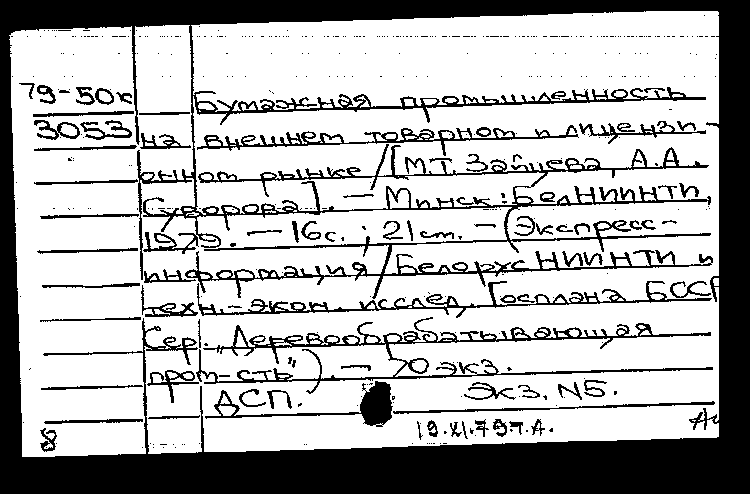 79-50к Бумажная промышленность
3053 на внешнем товарном и лицензи-
онном рынке / [М.Т. Зайцева, А.А.
Суворова]. — Минск : БелНИИНТИ,
1979. — 16с. ; 21 cm. — (Экспресс-
информация / Белорус НИИНТИ и
техн.-экон. исслед. Госплана БССР
Сер. „Деревообрабатывающая
пром-сть"). — 70 экз.
ДСП. Экз. N5.
8 19.XI.79г.